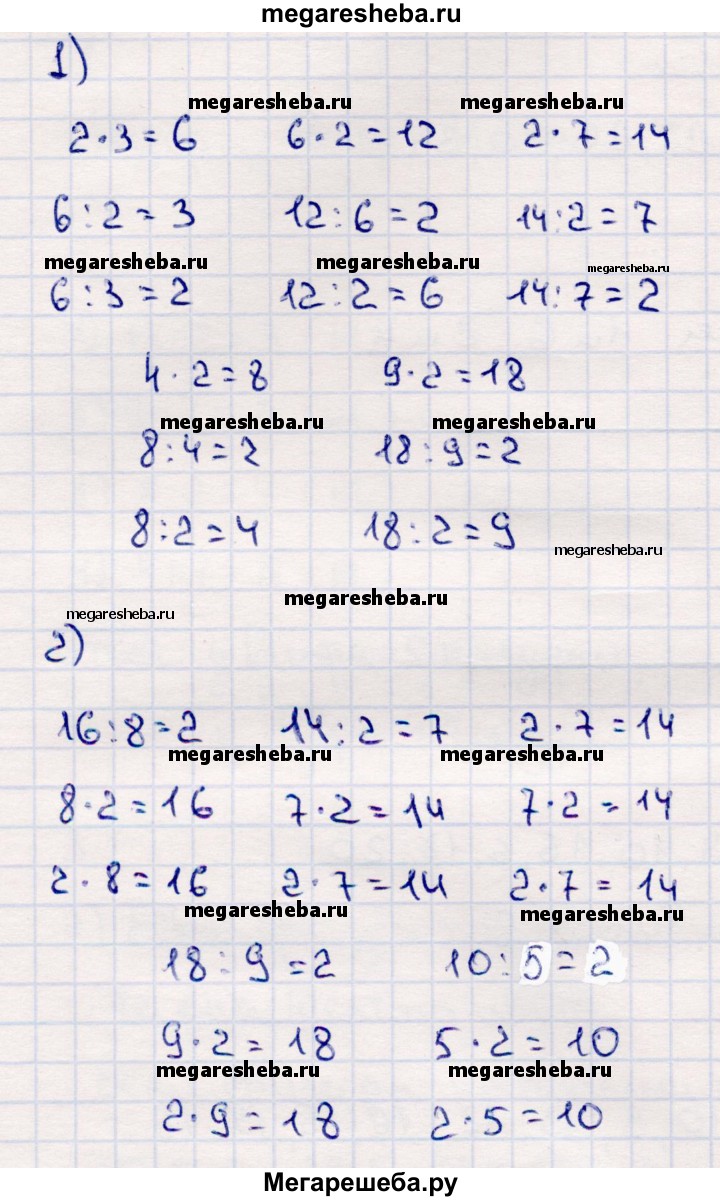 megaresheba.ru
1)
megaresheba.ru megaresheba.ru
2·3=6 6·2=12 2·7=14
6:2=3 12:6=2 14:2=7
megaresheba.ru megaresheba.ru megaresheba.ru
6:3=2 12:2=6 14:7=2
4·2=8 9·2=18
megaresheba.ru megaresheba.ru
8:4=2 18:9=2
8:2=4 18:2=9
megaresheba.ru
megaresheba.ru
megaresheba.ru
2)
16:8=2 14:2=7 2·7=14
megaresheba.ru megaresheba.ru
8·2=16 7·2=14 7·2=14
2·8=16 2·7=14 2·7=14
megaresheba.ru megaresheba.ru
18:9=2 10:5=2
9·2=18 5·2=10
megaresheba.ru megaresheba.ru
2·9=18 2·5=10
Мегарешеба.ру